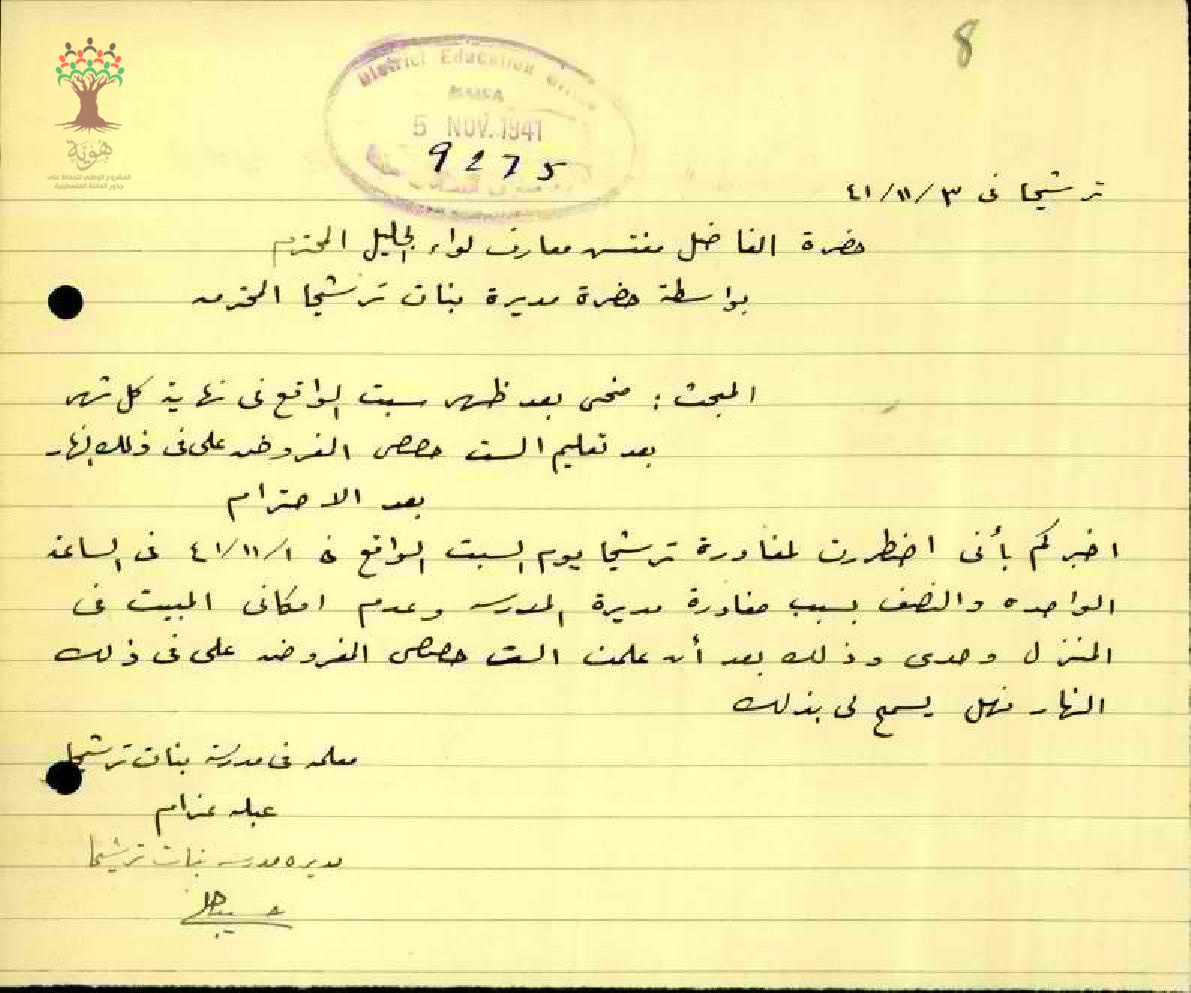 8
District Education Office
HAIFA
5 NOV. 1941
9275
هوية
المشروع الوطني للحفاظ على
جذور العائلة الفلسطينية
ترشيحا في ٤١/١١/٣
حضرة الفاضل مفتش معارف لواء الجليل المحترم
بواسطة حضرة مديرة بنات ترشيحا المحترمه
المبحث : منحي بعد ظهر سبت الواقع في نهاية كل شهر
بعد تعليم الست حصص المفروضه علي في ذلك النهار
بعد الاحترام
اخبركم بأني اضطررت لمغادرة ترشيحا يوم السبت الواقع في ٤١/١١/١ في الساعه
الواحده والنصف بسبب مغادرة مديرة المدرسه وعدم امكاني المبيت في
المنزل وحدي وذلك بعد أن علمت الست حصص المفروضه علي في ذلك
النهار فهل يسمح لي بذلك
معلمه في مدرسة بنات ترشيحا
عبله عزام
مديره مدرسه بنات ترشيحا